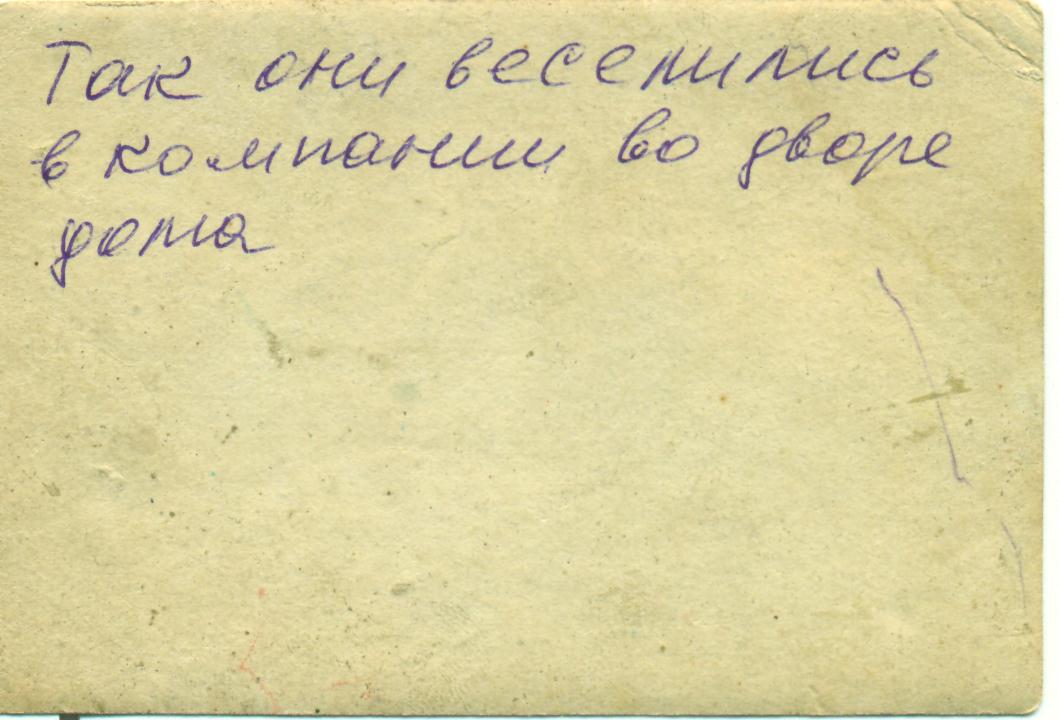 Так они веселились
в компании во дворе
дома